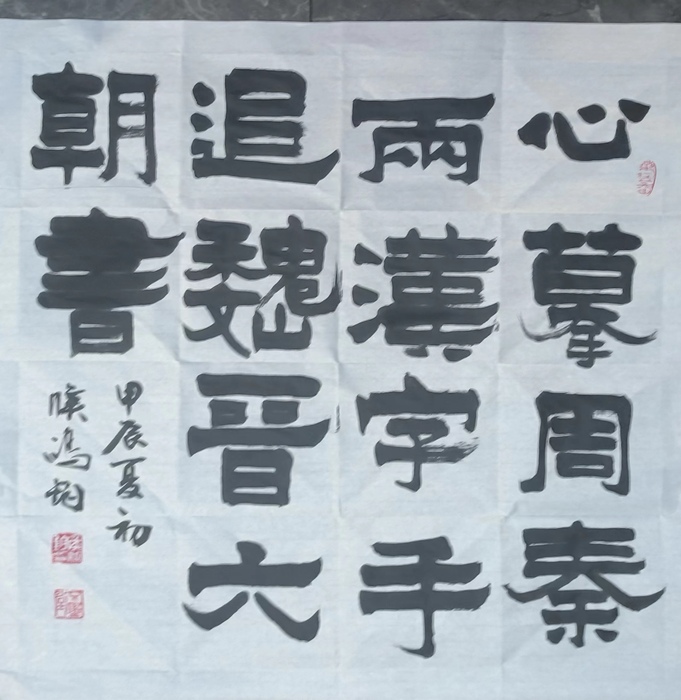 心摹周秦
兩漢字手
追魏晉六
朝書
甲辰夏初